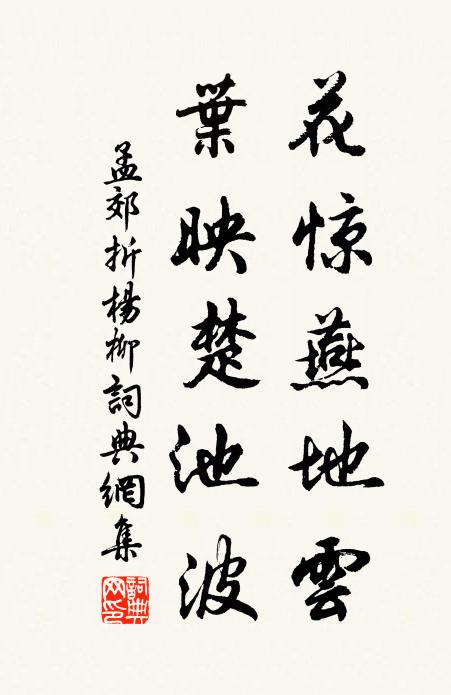 花惊燕地雲
葉映楚池波
孟郊折楊柳詞典網集
詞典網印